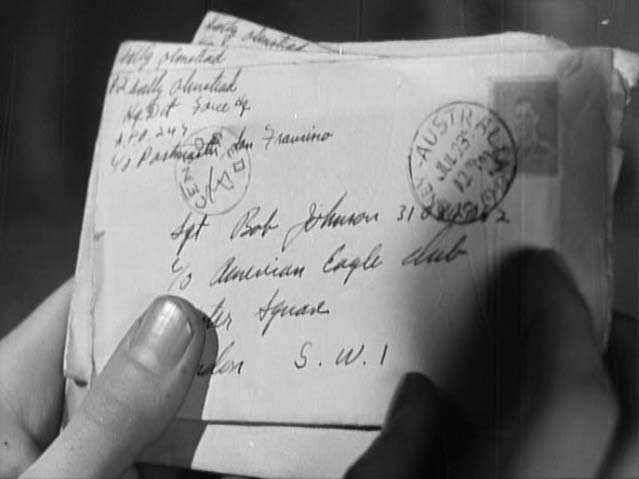 Sally Olmstead
Sally Olmstead
Pvt Sally Olmstead
Hq. Det Force Hq.
A.P.O. 247
c/o Postmaster San Francisco
AUSTRALIA
JUL 23
12
Sgt Bob Johnson
c/o American Eagle Club
ter Square
ndon S.W.1